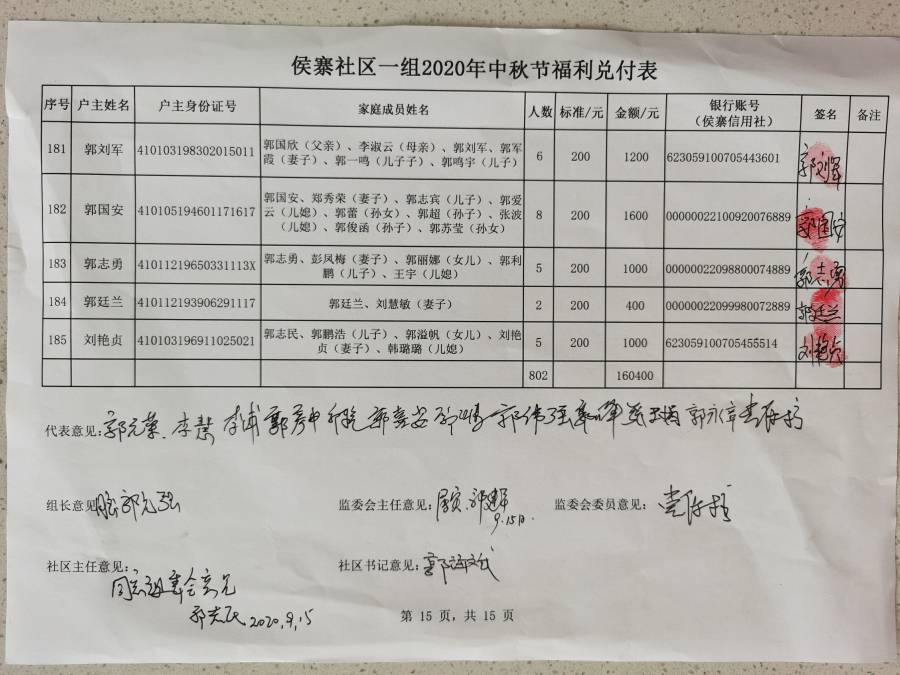 侯寨社区一组2020年中秋节福利兑付表
序号 户主姓名 户主身份证号 家庭成员姓名 人数 标准/元 金额/元 银行账号（侯寨信用社） 签名 备注
181 郭刘军 410103198302015011 郭国欣（父亲）、李淑云（母亲）、郭刘军、郭军霞（妻子）、郭一鸣（儿子子）、郭鸣宇（儿子） 6 200 1200 623059100705443601 郭刘军
182 郭国安 410105194601171617 郭国安、郑秀荣（妻子）、郭志宾（儿子）、郭爱云（儿媳）、郭蕾（孙女）、郭超（孙子）、张波（儿媳）、郭俊函（孙子）、郭苏莹（孙女） 8 200 1600 00000022100920076889 郭国安
183 郭志勇 41011219650331113X 郭志勇、彭凤梅（妻子）、郭丽娜（女儿）、郭利鹏（儿子）、王宇（儿媳） 5 200 1000 00000022098800074889 郭志勇
184 郭廷兰 410112193906291117 郭廷兰、刘慧敏（妻子） 2 200 400 00000022099980072889 郭廷兰
185 刘艳贞 410103196911025021 郭志民、郭鹏浩（儿子）、郭溢帆（女儿）、刘艳贞（妻子）、韩璐璐（儿媳） 5 200 1000 623059100705455514 刘艳贞
802 160400
代表意见： 郭元荣 李慧 郭伟强 郭永军
组长意见 监委会主任意见： 9.15日. 监委会委员意见：
社区主任意见： 社区书记意见：
郭志民 2020.9.15
第 15 页，共 15 页